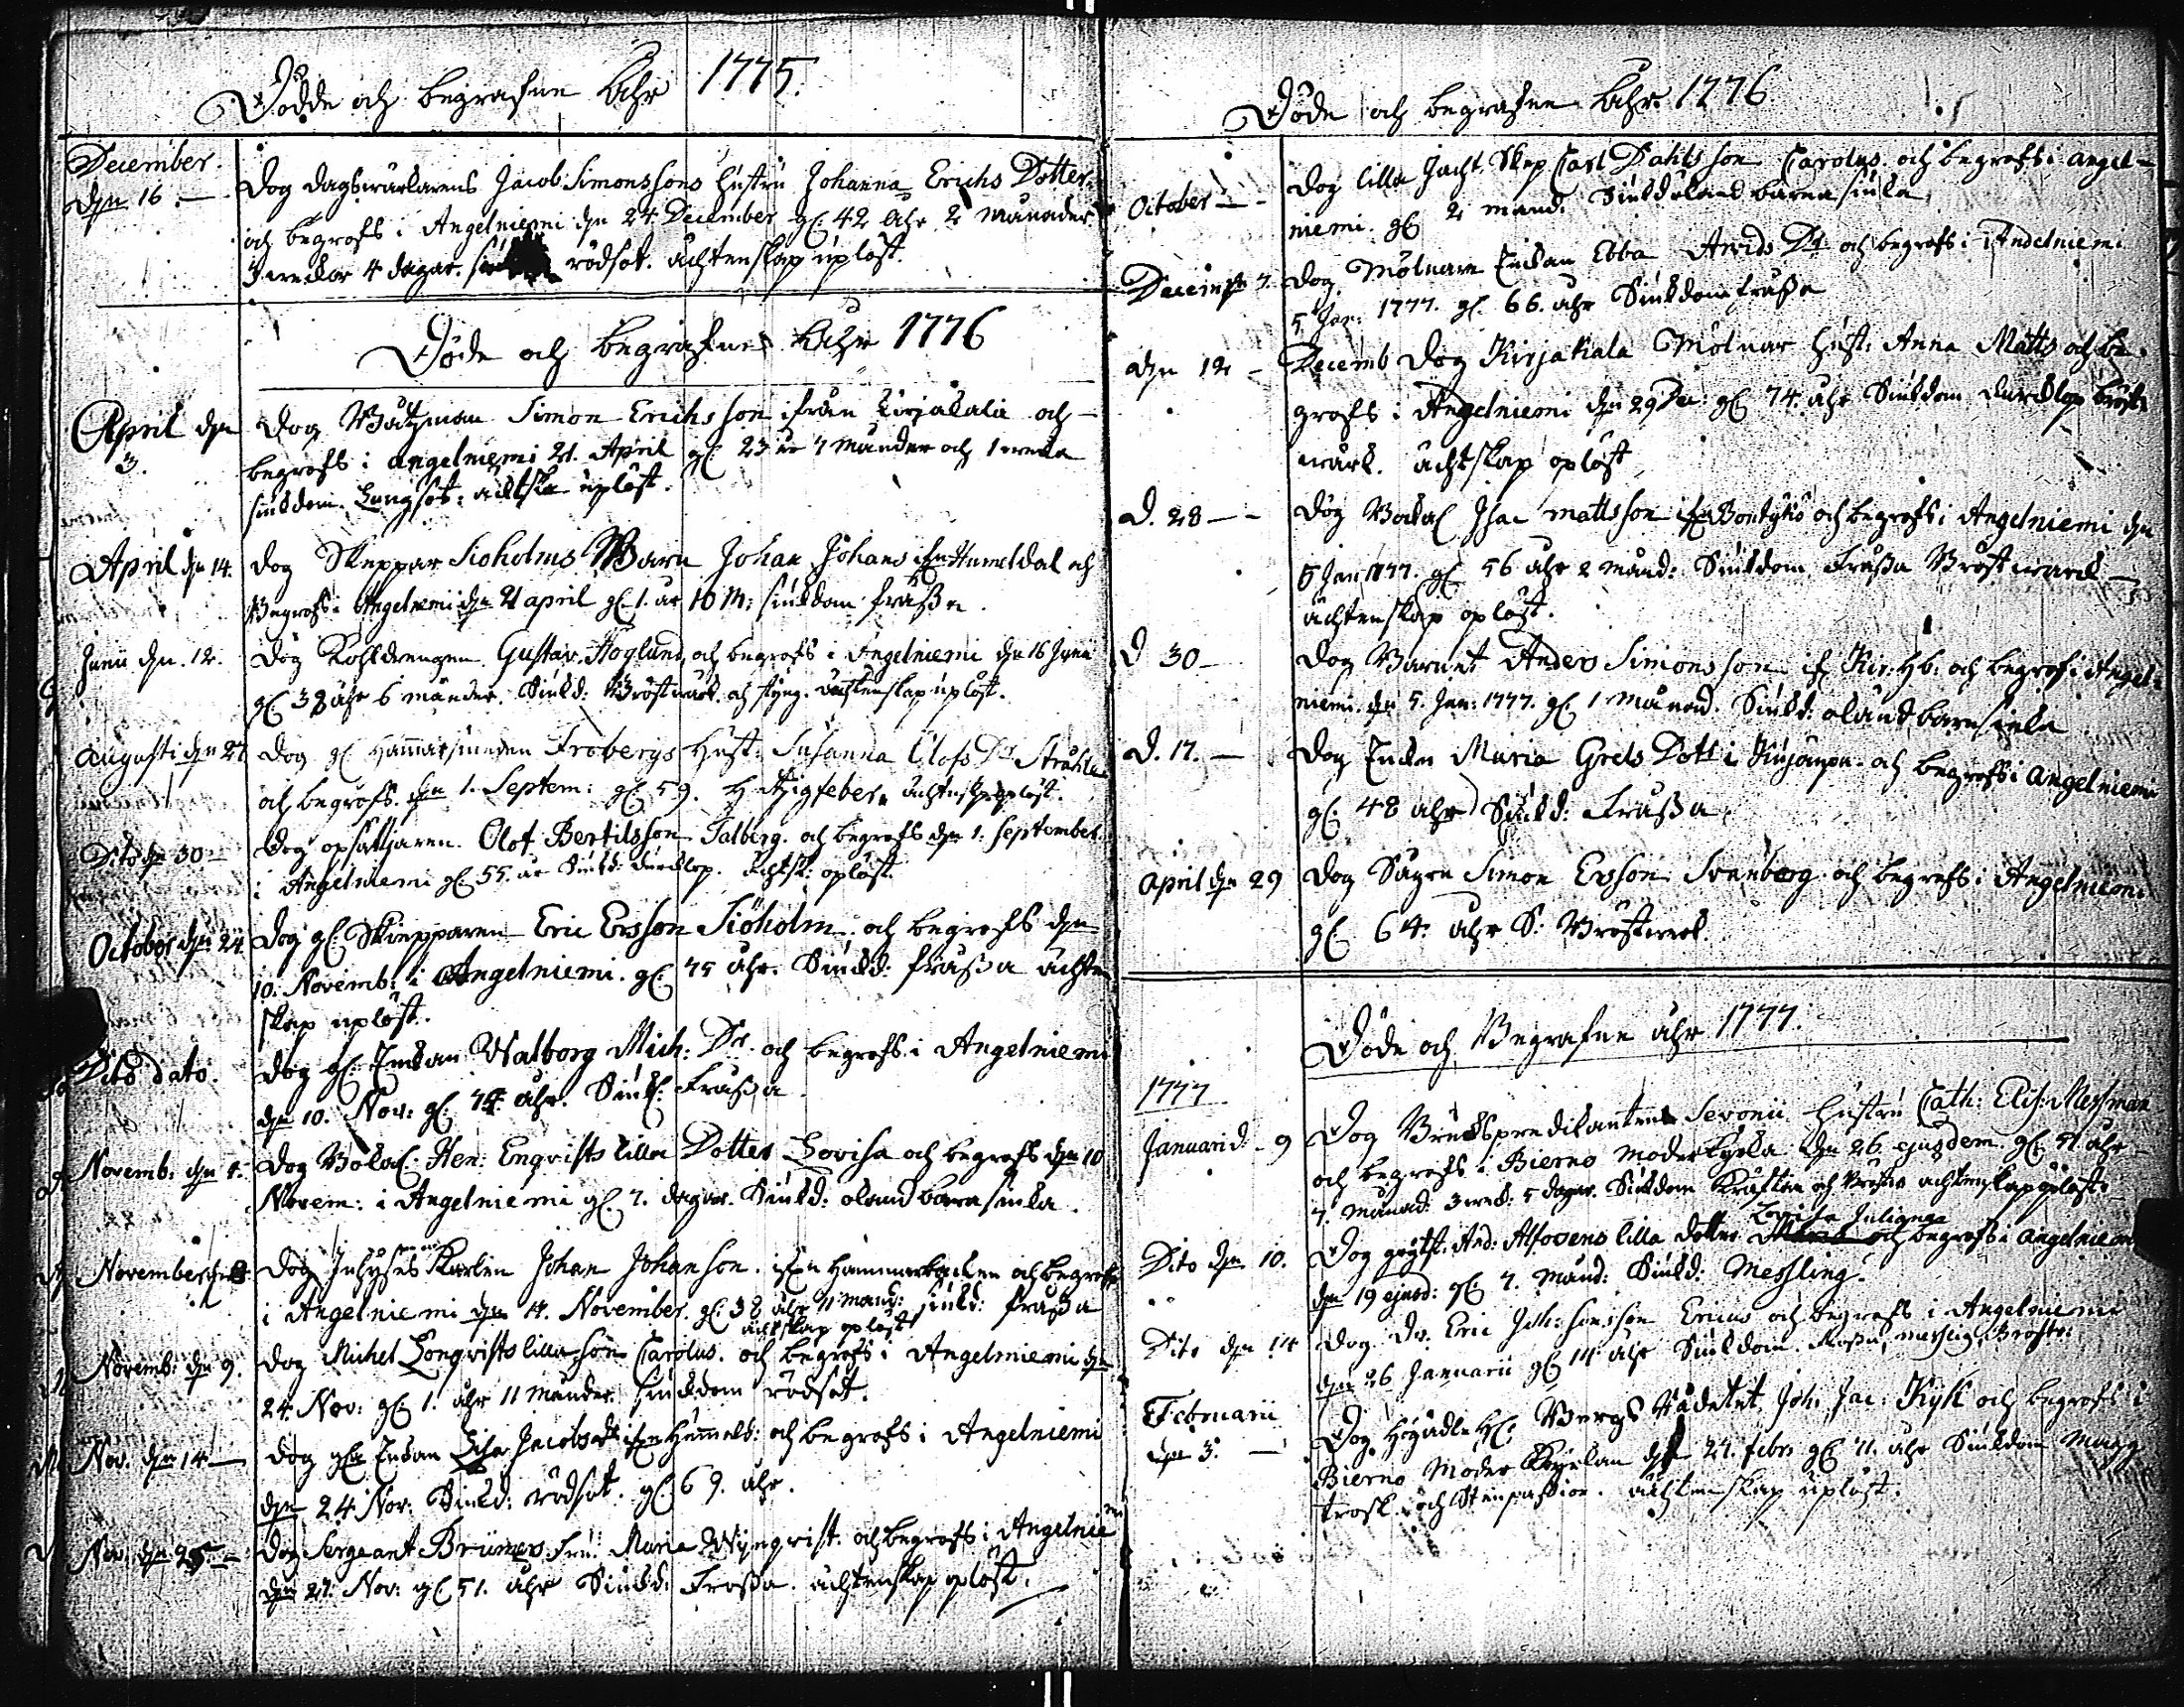 Döde och begrafne Åhr 1775.
December
den 16. Dog dagswärkarens Jacob Simonssons hustru Johanna Erichs Dotter
och begrofs i Angelniemi den 24 December gl: 42 åhr 2 månader
3 weckor 4 dagar. rödsot. ächtenskap uplöst.
Döde och begrafne Åhr 1776
April den 3. Dog Båtzman Simon Erichsson ifrån Kirjakala och
begrofs i angelniemi 21. April gl: 23 år 7 månder och 1 weka
siukdom. Lungsot: ächtsk uplöst.
April den 14. Dog Skeppar Siöholms Barn Johan Johans ifrån Hummeldal och
Begrofs i Angelniemi den 21 april gl: 1. år 10 M: siukdom frässa.
Junii den 12. Dog Kohldrengen Gustav Höglund och begrofs i Angelniemi den 16 Junii
gl: 38 åhr 6 månder. Siukd: Bröstwärk och styng. ächtenskap uplöst.
Augusti den 27 Dog gl: Hammarsmeden Frobergs Hust: Susanna Olofs Dr Stråhle
och begrofs den 1. Septem: gl: 59. Hetzigfeber, ächtensk: oplöst.
Dito den 30 Dog opsättjaren Olof Bertilsson Talberg. och begrofs den 1. September
i Angelniemi gl: 55. år Siukd: durklop. Ächtsk: oplöst.
October den 24 Dog gl: Skiepparen Eric Ersson Siöholm och begrofs den
10. Novemb: i Angelniemi. gl: 75 åhr. Siukd: frässa ächten
skap uplöst.
Dito dato. Dog gl: Enkan Walborg Mich: Dr och begrofs i Angelniemi
den 10. Nov: gl: 74 åhr. Siukd: Frässa.
Novemb: den 4. Dog Hen: Enqvists lilla Dotter Lovisa och begrofs den 10
Novem: i Angelniemi gl: 7. dagar. Siukd: okand barnasiuka.
November den 8. Dog Inhyses Karlen Johan Johanson. ifrån Hammarbacken och begrofs
i Angelniemi den 17. November. gl: 38 åhr 11 mand: siukd: frässa
ächtskap oplöst
Novemb: den 9. Dog Michel Lonqvists lilla son Carolus. och begrofs i Angelniemi den
24. Nov: gl: 1. åhr 11 månder siukdom rödsot.
Nov. den 14 Dog gla Enkan Lisa Jacobsdr ifrån Hummeld: och begrofs i Angelniemi
den 24 Nov: Siukd: rödsot. gl: 69. åhr.
Nov. den 25 Dog Sergeant Brümers Fru Maria Wynqvist och begrofs i Angelniemi
den 27. Nov: gl: 51. åhr Siukd: Frossa. ächtenskap oplöst.
Döde och begrafne Åhr 1776
October Dog lilla Jacht Skep Carl Dahls son Carolus och begrofs i angel-
niemi. gl: 2 månd: Siukd okand barnasiuka
Decemb 7. Dog Mölnare Enkan Ebba Arvids Dt och begrofs i Andelniemi
5 Jan: 1777. gl: 66. åhr Siukdom frässa
den 12 Decemb Dog Kirjakala Mölnar Hust: Anna Matts och be-
grofs i Angelniemi den 29 De: gl: 74. åhr Siukdom durklop bröst
wärk. ächtskap oplöst
d. 28 Dog Isac mattsson och begrofs i Angelniemi den
5 Jan 1777. gl: 56 åhr 2 månd: Siukdom Frässa Bröstwärk
ächtenskap oplöst.
d 30 Dog Barnet Anders Simonsson if Kir: Hb: och begrofs i Angel-
niemi. den 5. Jan: 1777. gl: 1 månad. Siukd: okand barnsiuka
d. 17. Dog Enkan Maria Grels Dott i och begrofs i Angelniemi
gl: 48 åhr Siukd: Frässa
April den 29 Dog Sågen Simon Ersson Svanberg och begrofs i Angelniemi
gl: 64. åhr S: Bröstwerk.
Döde och Begrafne åhr 1777.
1777
Januari d. 9 Dog Brukspredikantens Sevonii hustru Cath: Elis: Messman
och begrofs i Bierno moderkyrka den 26 ejusdem gl: 51 åhr
7. månad: 3 weck: 5 dagar. Siukdom Kräfte och Bröstw ächtenskap oplöst.
Lovisa Juliana
Dito den 10. Dog And: Alfovens lilla dotter och begrofs i angelniemi
den 19 ejusd: gl: 7. månd: Siukd: Messling.
Dito den 14 Dog Dr. Eric Joh: sons son Ericus och begrofs i Angelniemi
den 26 Januarii gl: 14 åhr Siukdom. Frossa, messling
Februarii
den 3. Dog Högädle H: Bergs Rådetet Joh: Jac: Kijk och begrofs i
Bierno Moder Kyrkan den 27. febr: gl: 71. åhr Siukdom Mag
trosk och Stenpassion. ächtenskap uplöst.